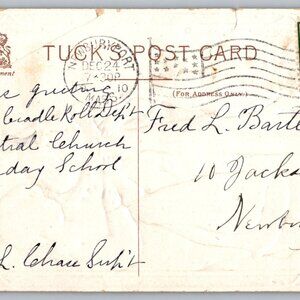 TUCK POST CARD
NEWBURYPORT
DEC 24
7-30P
10
MASS
(FOR ADDRESS ONLY.)
greeting
Cradle Roll Dep't
tral Church
day School
L. Chace Sup't
Fred L. Bart
10 Jacks
Newb